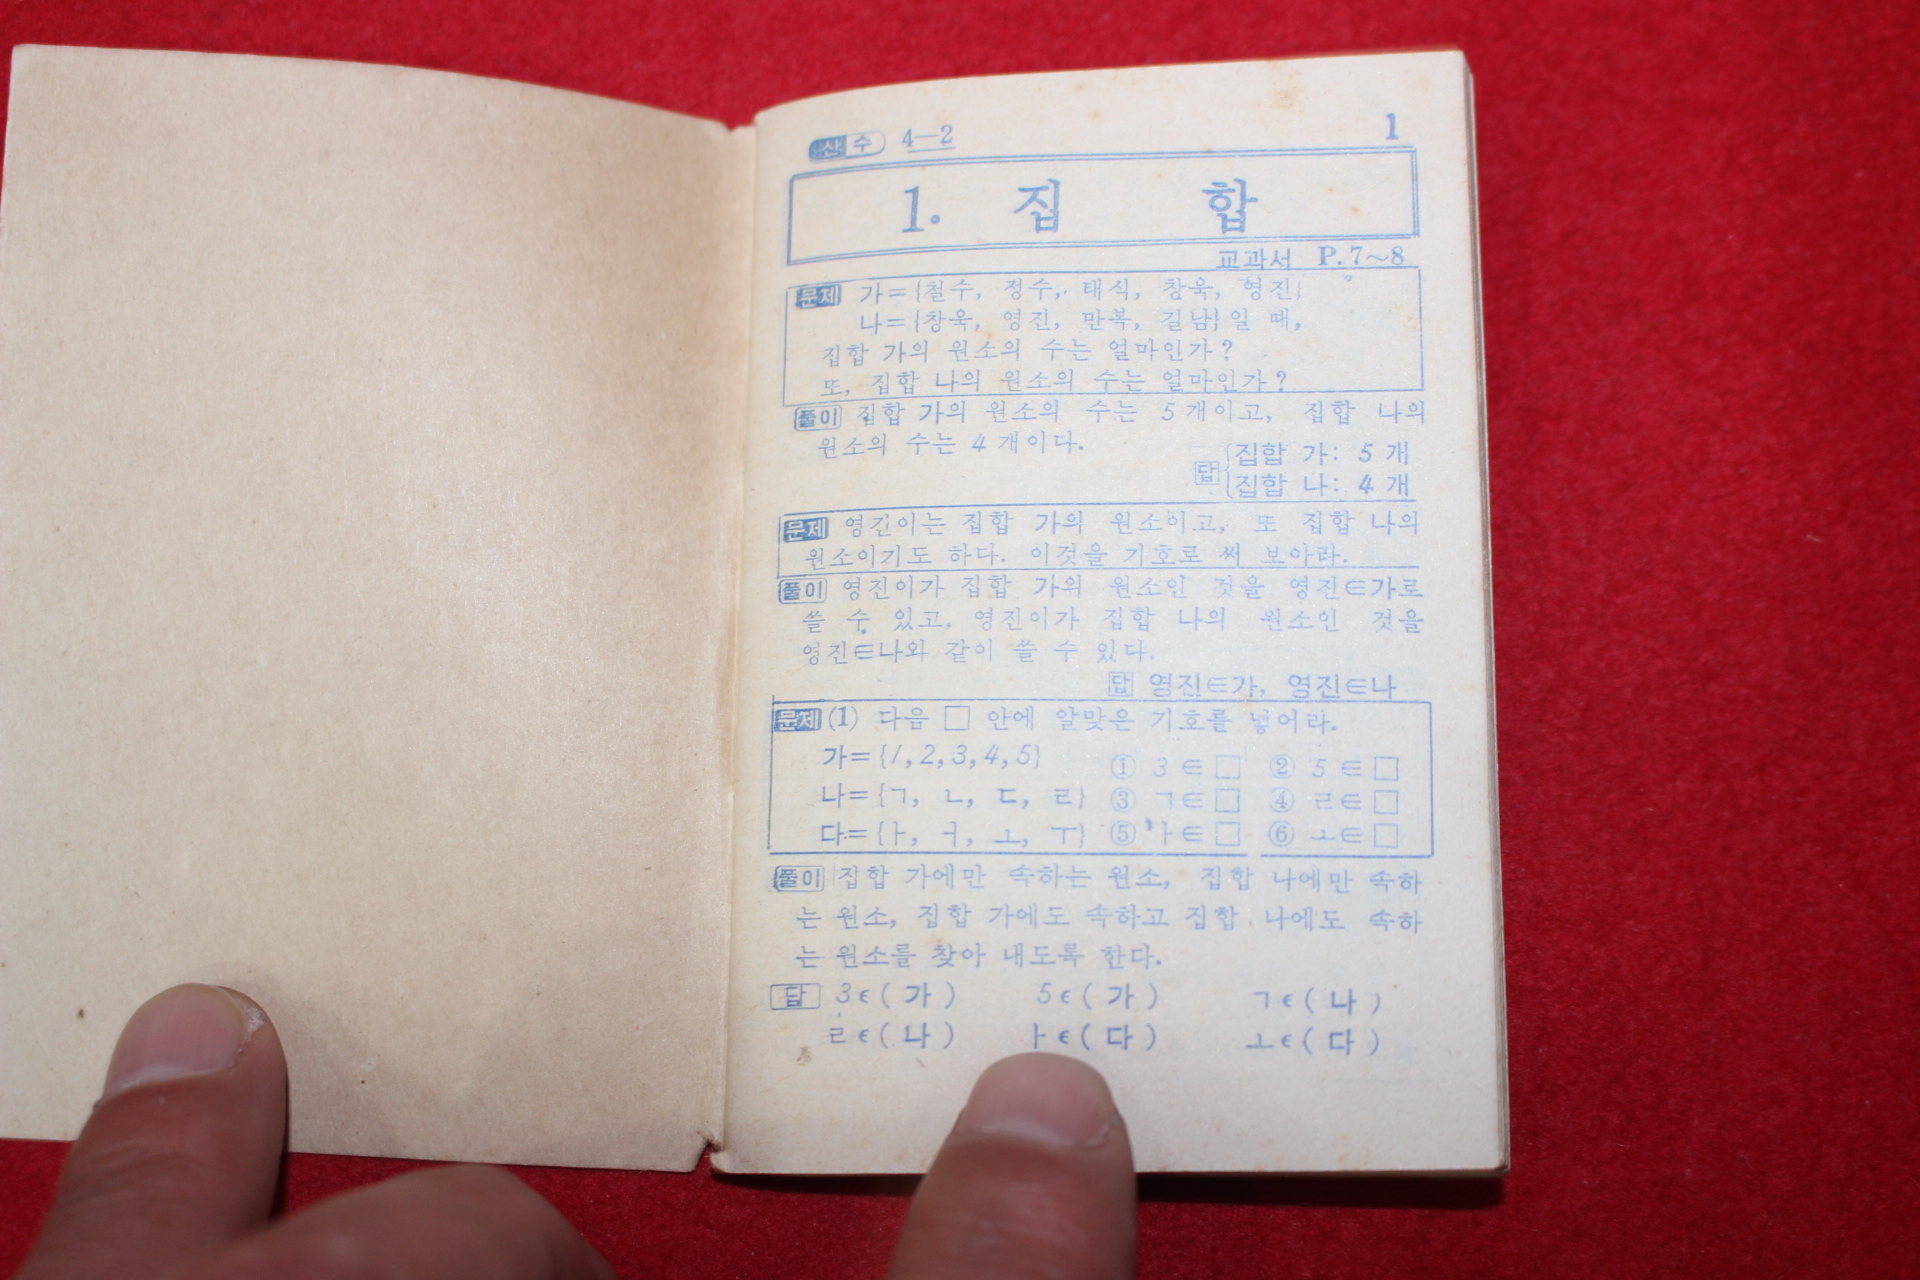 산수 4—2
1
1. 집 합
교과서 P.7~8
문제 가={철수, 정수, 태식, 창욱, 영진}
나={창욱, 영진, 만복, 길남}일 때,
집합 가의 원소의 수는 얼마인가?
또, 집합 나의 원소의 수는 얼마인가?
풀이 집합 가의 원소의 수는 5개이고, 집합 나의
원소의 수는 4개이다.
답 {집합 가: 5개
{집합 나: 4개
문제 영진이는 집합 가의 원소이고, 또 집합 나의
원소이기도 하다. 이것을 기호로 써 보아라.
풀이 영진이가 집합 가의 원소인 것을 영진∈가로
쓸 수 있고, 영진이가 집합 나의 원소인 것을
영진∈나와 같이 쓸 수 있다.
답 영진∈가, 영진∈나
문제 (1) 다음 □ 안에 알맞은 기호를 넣어라.
가={1,2,3,4,5} ① 3∈□ ② 5∈□
나={ㄱ, ㄴ, ㄷ, ㄹ} ③ ㄱ∈□ ④ ㄹ∈□
다={ㅏ, ㅓ, ㅗ, ㅜ} ⑤ ㅏ∈□ ⑥ ㅗ∈□
풀이 집합 가에만 속하는 원소, 집합 나에만 속하
는 원소, 집합 가에도 속하고 집합 나에도 속하
는 원소를 찾아 내도록 한다.
답 3∈(가) 5∈(가) ㄱ∈(나)
ㄹ∈(나) ㅏ∈(다) ㅗ∈(다)